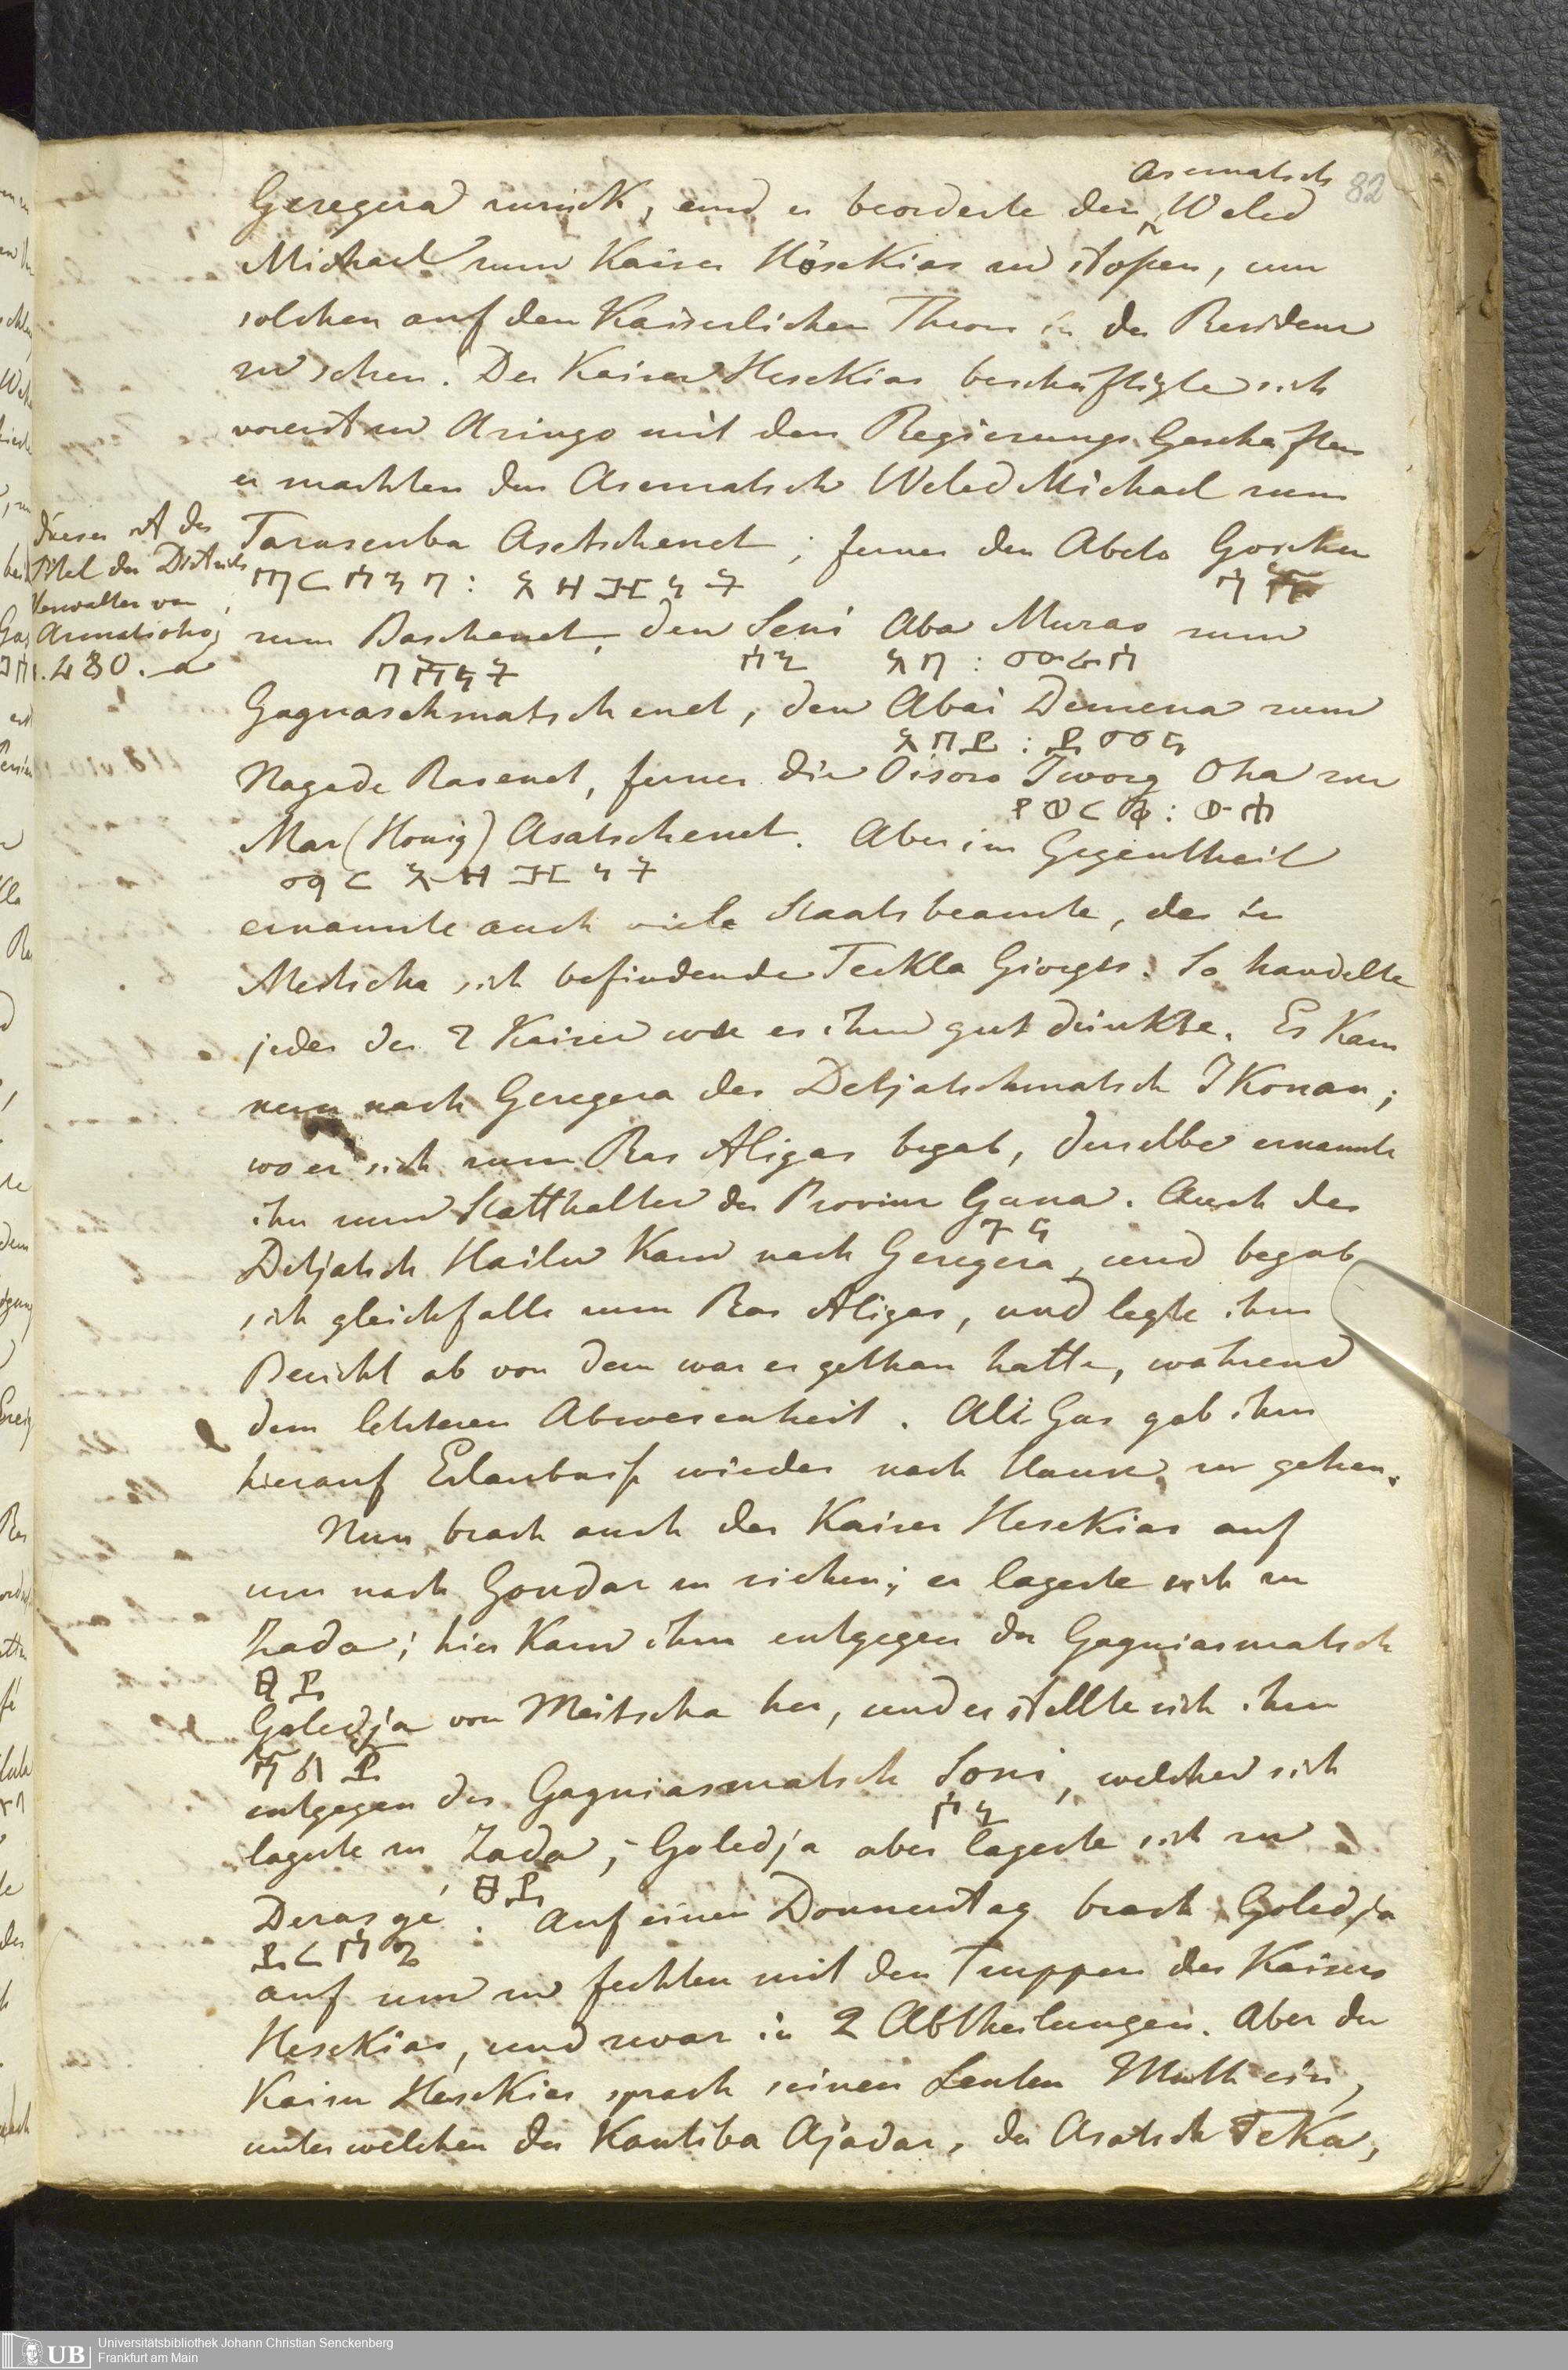 Asematsch 82
Geregera zurück, und er beorderte den Weled
Michael zum Kaiser Hesekias zu stoßen, um
solchen auf den Kaiserlichen Thron in der Residenz
zu sehen. Der Kaiser Hesekias beschäftigte sich
vorerst zu Aringo mit den Regierungs Geschäften
er machten den Asematsch Weled Michael zum
Tarasenba Asetschenet; ferner den Abeto Goschu
zum Baschenet, den Seni Aba Muras zum
በሸነት ሰኒ አበ : ሙራሰ
Gagnaschmatschenet, den Abai Demena zum
አበደ : ደመና
Nagade Rasenet, ferner die Oisoro Tworg Oha zur
Mar (Honig) Asatschenet. Aber im Gegentheil
ማር አዛዠነት
ernannte auch viele Staatsbeamte, der in
Meitscha sich befindende Teckla Giorgis. So handelte
jeder der 2 Kaiser wie es ihm gut dünkte. Es kam
nun nach Geregera der Detjatschmatsch Ikonan;
wo er sich zum Ras Aligas begab, derselbe ernannte
ihn zum Statthalter der Provinz Guna. Auch der
ጉና
Detjatsch Hailu kam nach Geregera, und begab
sich gleichfalls zum Ras Aligas, und legte ihm
Bericht ab von dem was er gethan hatte, während
dem letzteren Abwesenheit. Ali Gas gab ihm
hierauf Erlaubniß wieder nach Hause zu gehen.
Nun brach auch der Kaiser Hesekias auf
um nach Gondar zu ziehen; er lagerte sich zu
Zada; hier kam ihm entgegen der Gagniasmatsch
ፀዳ
Goledja von Meitscha her, und er stellte sich ihm
ጎልጃ
entgegen der Gagniasmatsch Soni, welcher sich
ሶኒ
lagerte zu Zada; Goledja aber lagerte sich zu
ፀዳ
Derasgé. Auf einen Donnerstag brach Goledja
ደረስጌ
auf um zu fechten mit den Truppen des Kaisers
Hesekias, und zwar in 2 Abtheilungen. Aber der
Kaiser Hesekias sprach seinen Leuten Muth ein,
unter welchen der Kantiba Ajadar, der Asatsch Teka,
Dieses ist der
Titel des Districts
Verwalter von
Armatschoho
.480. a
UB Universitätsbibliothek Johann Christian Senckenberg
Frankfurt am Main